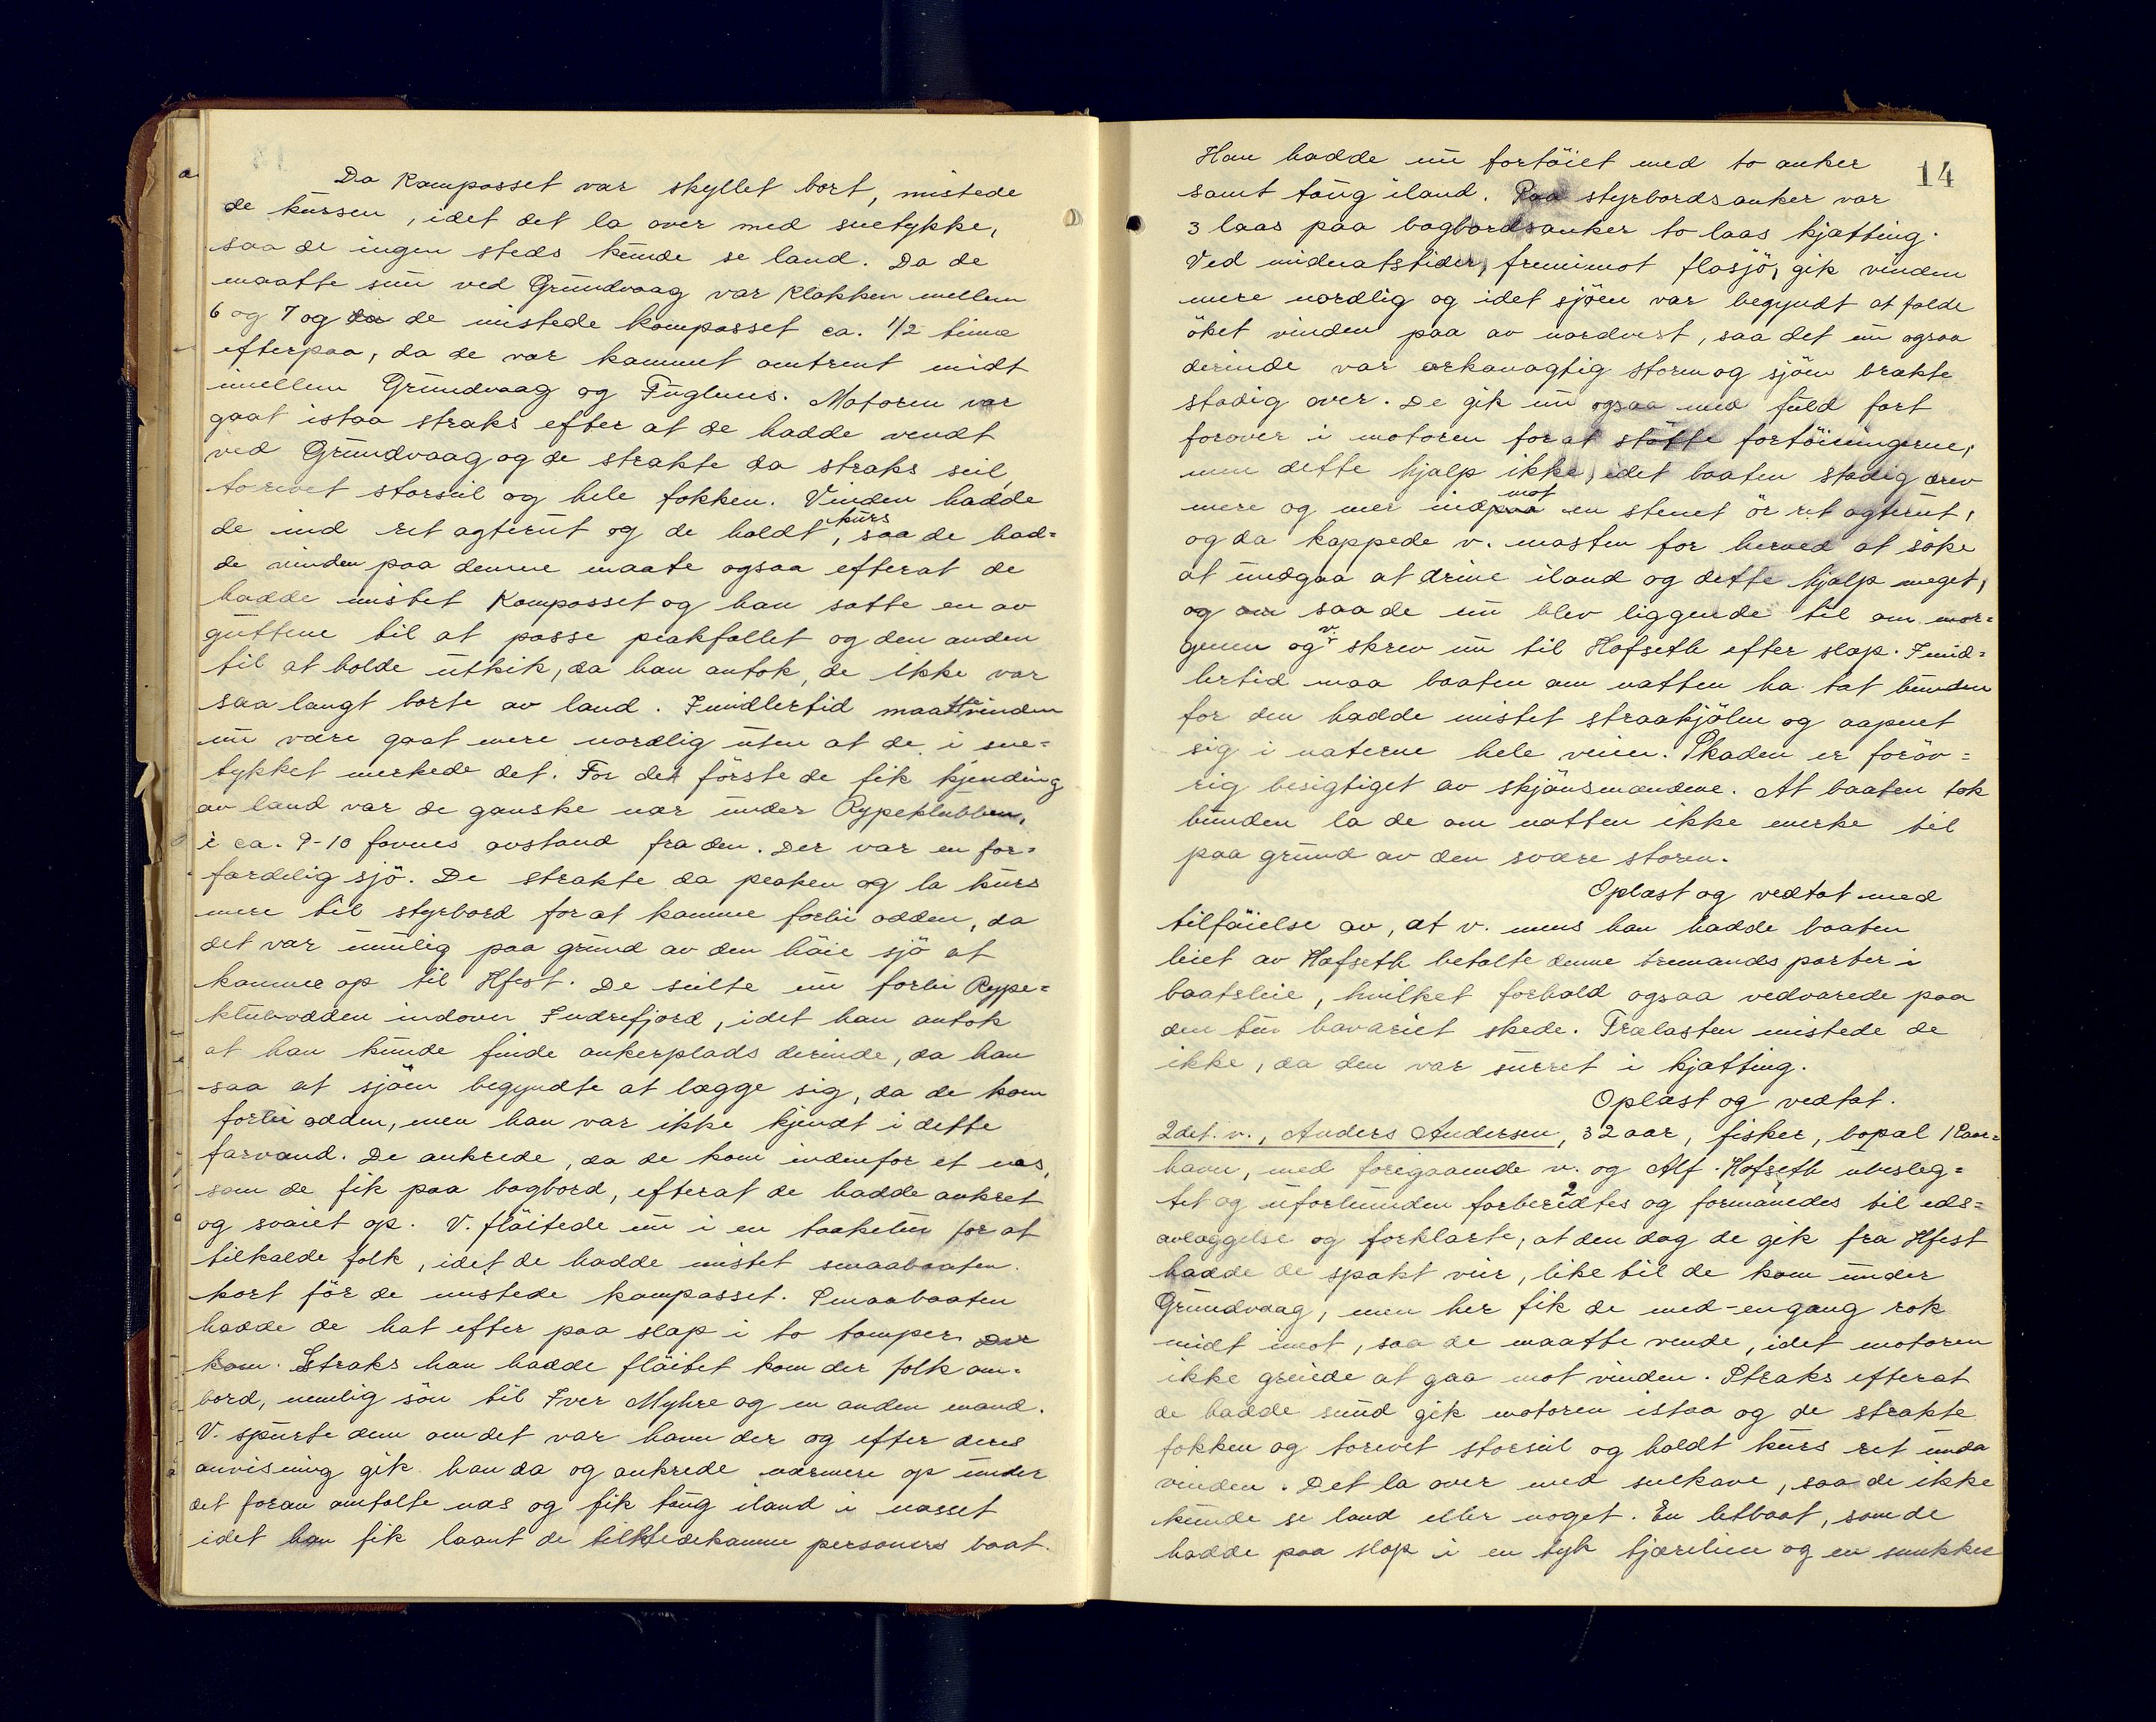 Da Kompasset var skyllet bort, mistede
de kursen, idet det la over med snetykke,
saa de ingen steds kunde se land. Da de
maatte snu ved Grundvaag var Klokken mellem
6 og 7 og da de mistede kompasset ca. 1/2 time
efterpaa, da de var kommet omtrent midt
imellem Grundvaag og Fuglnes. Motoren var
gaat istaa straks efter at de hadde vendt
ved Grundvaag og de strakte da straks seil,
torevet storseil og hele fokken. Vinden hadde
de ind ret agterut og de holdt kurs, saa de had=
de vinden paa denne maate ogsaa efterat de
hadde mistet Kompasset og han satte en av
guttene til at passe peakfallet og den anden
til at holde utkik, da han antok, de ikke var
saa langt borte av land. Imidlertid maatte vinden
nu være gaat mere nordlig uten at de i sne=
tykket merkede det. For det første de fik kjending
av land var de ganske nær under Rypeklubben,
i ca. 9-10 favnes avstand fra den. Der var en for=
færdelig sjö. De strakte da peaken og la kurs
mere til styrbord for at komme forbi odden, da
det var umulig paa grund av den höie sjö at
komme op til Hfest. De seilte nu forbi Rype=
klubodden indover Indrefjord, idet han antok
at han kunde finde ankerplads derinde, da han
saa at sjöen begyndte at lægge sig, da de kom
forbi odden, men han var ikke kjendt i dette
farvand. De ankrede, da de kom indenfor et næs,
som de fik paa bagbord, efterat de hadde ankret
og svaiet op. V. flöitede nu i en taakelur for at
tilkalde folk, idet de hadde mistet smaabaaten
kort för de mistede kompasset. Smaabaaten
hadde de hat efter paa slæp i to tamper. Der
kom. Straks han hadde flöitet kom der folk om=
bord, nemlig sön til Iver Myhre og en anden mand.
V. spurte dem om det var havn der og efter deres
anvisning gik han da og ankrede nærmere op under
det foran omtalte næs og fik taug iland i næsset
idet han fik laant de tilstedekomne personers baat.
14
Han hadde nu fortöiet med to anker
samt taug iland. Paa styrbordsanker var
3 laas paa bagbordsanker to laas kjætting.
Ved midnatstider, fremimot flosjö, gik vinden
mere nordlig og idet sjöen var begyndt at falde
öket vinden paa av nordvest, saa det nu ogsaa
derinde var orkanagtig storm og sjöen brækte
stadig over. De gik nu ogsaa med fuld fart
forover i motoren for at stötte fortöiningerne,
men dette hjalp ikke, idet baaten stadig drev
mere og mer ind paa mot en stenet ör ret agterut,
og da kappede v. masten for herved at söke
at undgaa at drive iland og dette hjalp meget,
og om saa de nu blev liggende til om mor=
genen og v. skrev nu til Hofseth efter slæp. Imid=
lertid maa baaten om natten ha tat bunden
for den hadde mistet straakjölen og aapnet
sig i naterne hele veien. Skaden er foröv=
rig besigtiget av skjönsmændene. At baaten tok
bunden la de om natten ikke merke til
paa grund av den svære storm.
Oplæst og vedtat med
tilföielse av, at v. mens han hadde baaten
leiet av Hofseth betalte denne tremands parter i
baatsleie, hvilket forhold ogsaa vedvarede paa
den tur havariet skede. Trælasten mistede de
ikke, da den var surret i kjætting.
Oplæst og vedtat.
2det. v., Anders Andersen, 32 aar, fisker, bopæl Kaar=
havn, med foregaaende v. og Alf. Hofseth ubeslæg=
tet og uforbunden forberedtes og formanedes til eds=
avlæggelse og forklarte, at den dag de gik fra Hfest
hadde de spakt veir, like til de kom under
Grundvaag, men her fik de med-engang rok
midt imot, saa de maatte vende, idet motoren
ikke greiede at gaa mot vinden. Straks efterat
de hadde snud gik motoren istaa og de strakte
fokken og torevet storseil og holdt kurs ret unda
vinden. Det la over med snekave, saa de ikke
kunde se land eller noget. En letbaat, som de
hadde paa slæp i en tyk tjærelien og en smekker